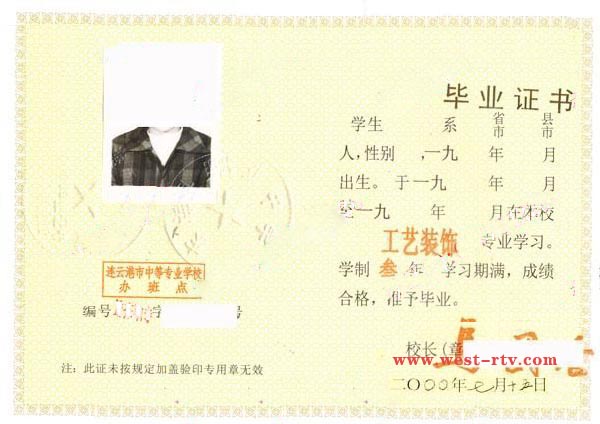 毕业证书
学生 系 省市 县市
人，性别 ，一九 年 月
出生。于一九 年 月
至一九 年 月在本校
工艺装饰 专业学习。
学制 叁 年 学习期满，成绩
合格，准予毕业。
校长（章
www.west-rtv.com
二〇〇〇年七月十五日
连云港市中等专业学校
办班点
编号 学 号
注：此证未按规定加盖验印专用章无效